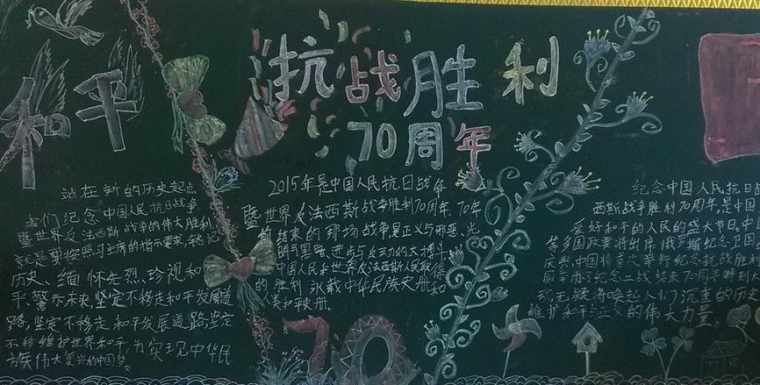 和平
抗战胜利
70周年
站在新的历史起点
我们纪念中国人民抗日战争
暨世界反法西斯战争的伟大胜利
就是要按照习主席的指示要求,铭记
历史、缅怀先烈、珍视和
平、警示未来,坚定不移走和平发展道
路,坚定不移走和平发展道路,坚定
不移维护世界和平,为实现中华民
族伟大复兴的中国梦。
2015年是中国人民抗日战争
暨世界反法西斯战争胜利70周年,70年
前结束的那场战争是正义与邪恶,光
明与黑暗,进步与反动的大搏斗,
中国人民和世界反法西斯人民取得
的胜利 永载中华民族史册和
人类和史册.
70
纪念中国人民抗日战
西斯战争胜利70周年,是中国
爱好和平的人民的盛大节日,中
等多国政要将出席 俄罗斯纪念卫国
庆典,中国将首次举行纪念抗战胜利
纪念二战结束70周年时刻
无疑将唤起人们沉重的历史
维护和平正义的伟大力量.